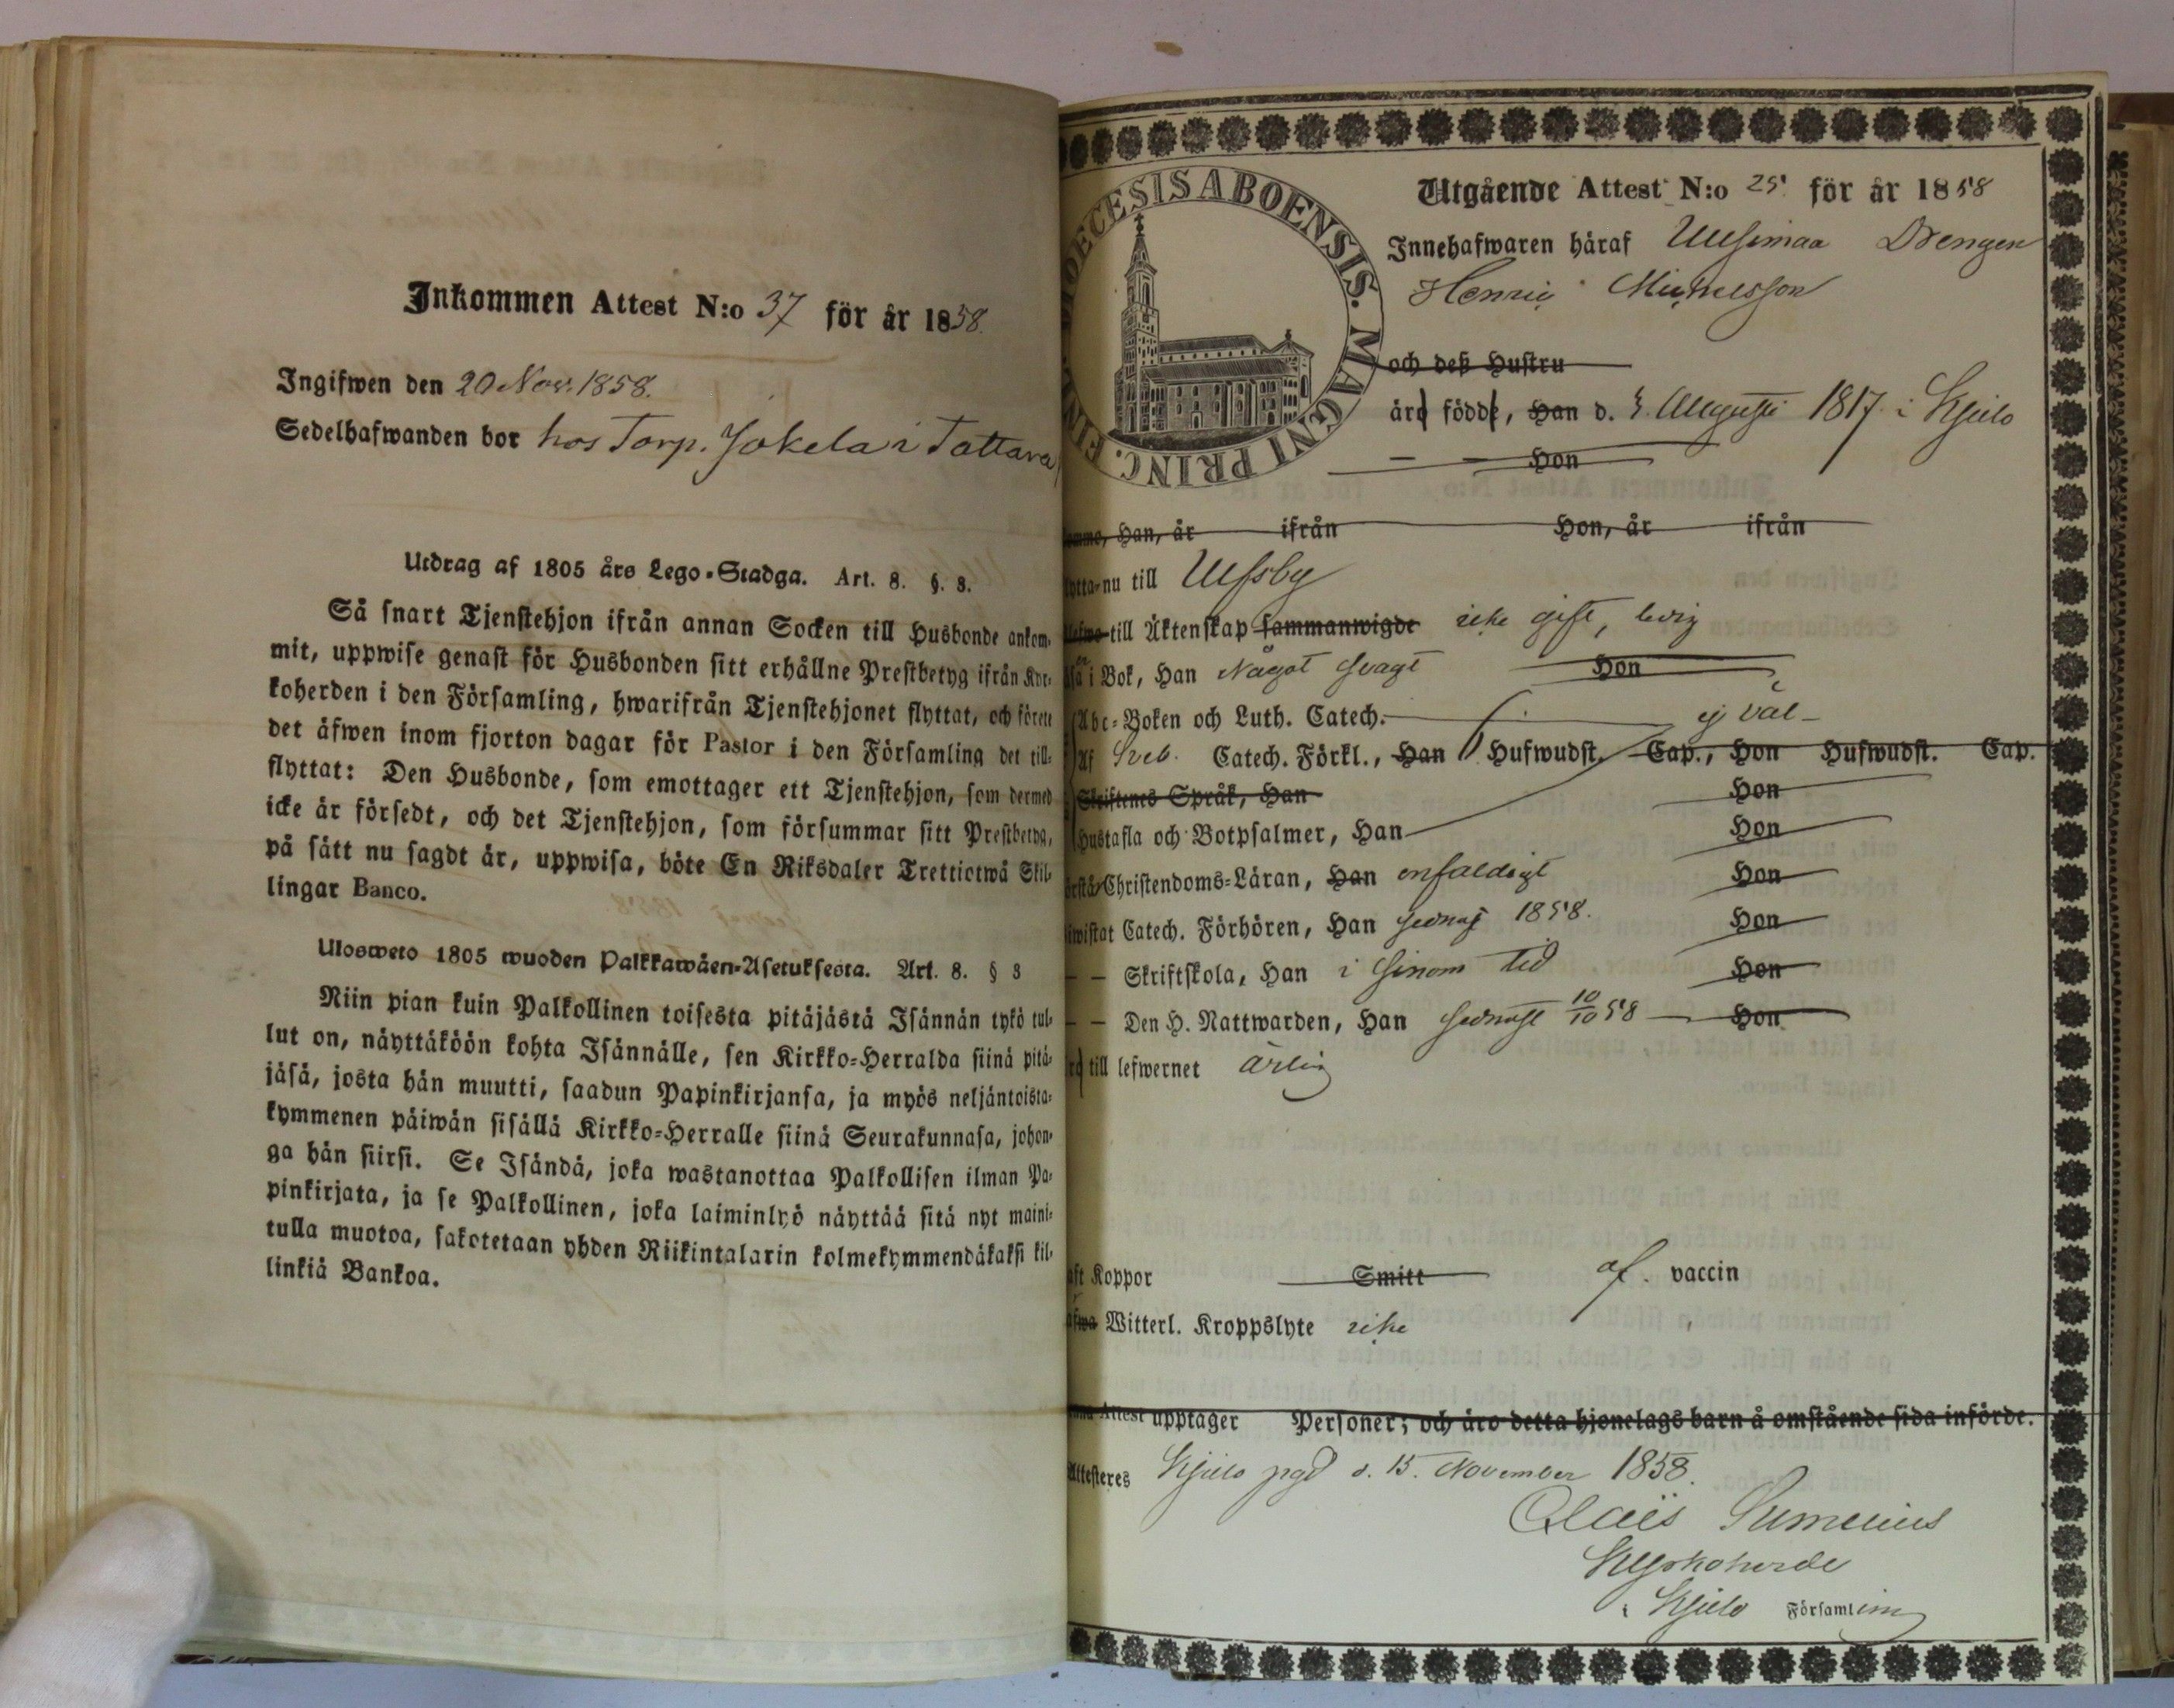 Inkommen Attest N:o 37 för år 1858.
Ingifwen den 20 Nov. 1858.
Sedelhafwanden bor hos Torp. Jokela i Tattara
Utdrag af 1805 års Lego-Stadga. Art. 8. §. 3.
Så snart Tjenstehjon ifrån annan Socken till Husbonde ankom-
mit, uppwise genast för Husbonden sitt erhållne Prestbetyg ifrån Kyr-
koherden i den Församling, hwarifrån Tjenstehjonet flyttat, och förete
det äfwen inom fjorton dagar för Pastor i den Församling det till-
flyttat: Den Husbonde, som emottager ett Tjenstehjon, som dermed
icke är försedt, och det Tjenstehjon, som försummar sitt Prestbetyg,
på sätt nu sagdt är, uppwisa, böte En Riksdaler Trettiotwå Skil-
lingar Banco.
Ulosweto 1805 wuoden Palkkawäen-Asetuksesta. Art. 8. § 3
Niin pian kuin Palkollinen toisesta pitäjästä Isännän tykö tul-
lut on, näyttäköön kohta Isännälle, sen Kirkko-Herralda siinä pitä-
jäsä, josta hän muutti, saadun Papinkirjansa, ja myös neljäntoista-
kymmenen päiwän sisällä Kirkko-Herralle siinä Seurakunnasa, johon-
ga hän siirsi. Se Isändä, joka wastanottaa Palkollisen ilman Pa-
pinkirjata, ja se Palkollinen, joka laiminlyö näyttää sitä nyt maini-
tulla muotoa, sakotetaan yhden Riikintalarin kolmekymmendäkaksi kil-
linkiä Bankoa.
DIOECESIS ABOENSIS. MAGNI PRINC. FINL.
Utgående Attest N:o 25. för år 1858
Innehafwaren häraf Uusimaa Drengen
Henric Michelsson
och deß Hustru
äro födde, Han d. Augusti 1817. i Kjulo
— — Hon
Han, år ifrån Hon, år ifrån
nu till Ulfsby
till Äktenskap sammanwigde icke gift, ledig
i Bok, Han Något svagt Hon
Abc-Boken och Luth. Catech. ej väl
Af Sveb. Catech. Förkl., Han Hufwudst. Cap., Hon Hufwudst. Cap.
Skriftenes Språk, Han Hon
Hustafla och Botpsalmer, Han Hon
Christendoms-Läran, Han enfaldigt Hon
Catech. Förhören, Han sednast 1858. Hon
— — Skriftskola, Han i sinom tid Hon
— — Den H. Nattwarden, Han sednast 10/10 58 Hon
till lefwernet ärlig
Koppor Smitt af. vaccin
Witterl. Kroppslyte icke
Attest upptager Personer; och äro detta hjonelags barn å omstående sida införde.
Attesteres Kjulo pgd d. 15. November 1858.
Kyrkoherde
i Kjulo Församling